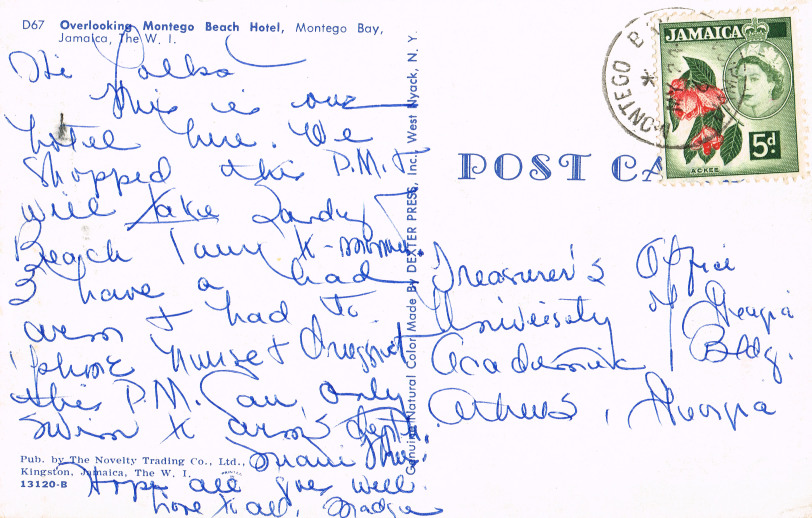 D67 Overlooking Montego Beach Hotel, Montego Bay,
Jamaica, The W. I.
Hi Folks
This is our
hotel here. We
shopped this P.M. &
will take
Beach
I have a bad
arm & had to
'phone nurse & druggist
this P.M. Can only
swim
Hope all goes well.
Love to all, Madge
Pub. by The Novelty Trading Co., Ltd.,
Kingston, Jamaica, The W. I.
13120-B
Genuine Natural Color Made By DEXTER PRESS, Inc., West Nyack, N. Y.
POST CA
MONTEGO B
JAMAICA
5d
ACKEE
Treasurer's Office
University of Georgia
Academic Bldg.
Athens, Georgia